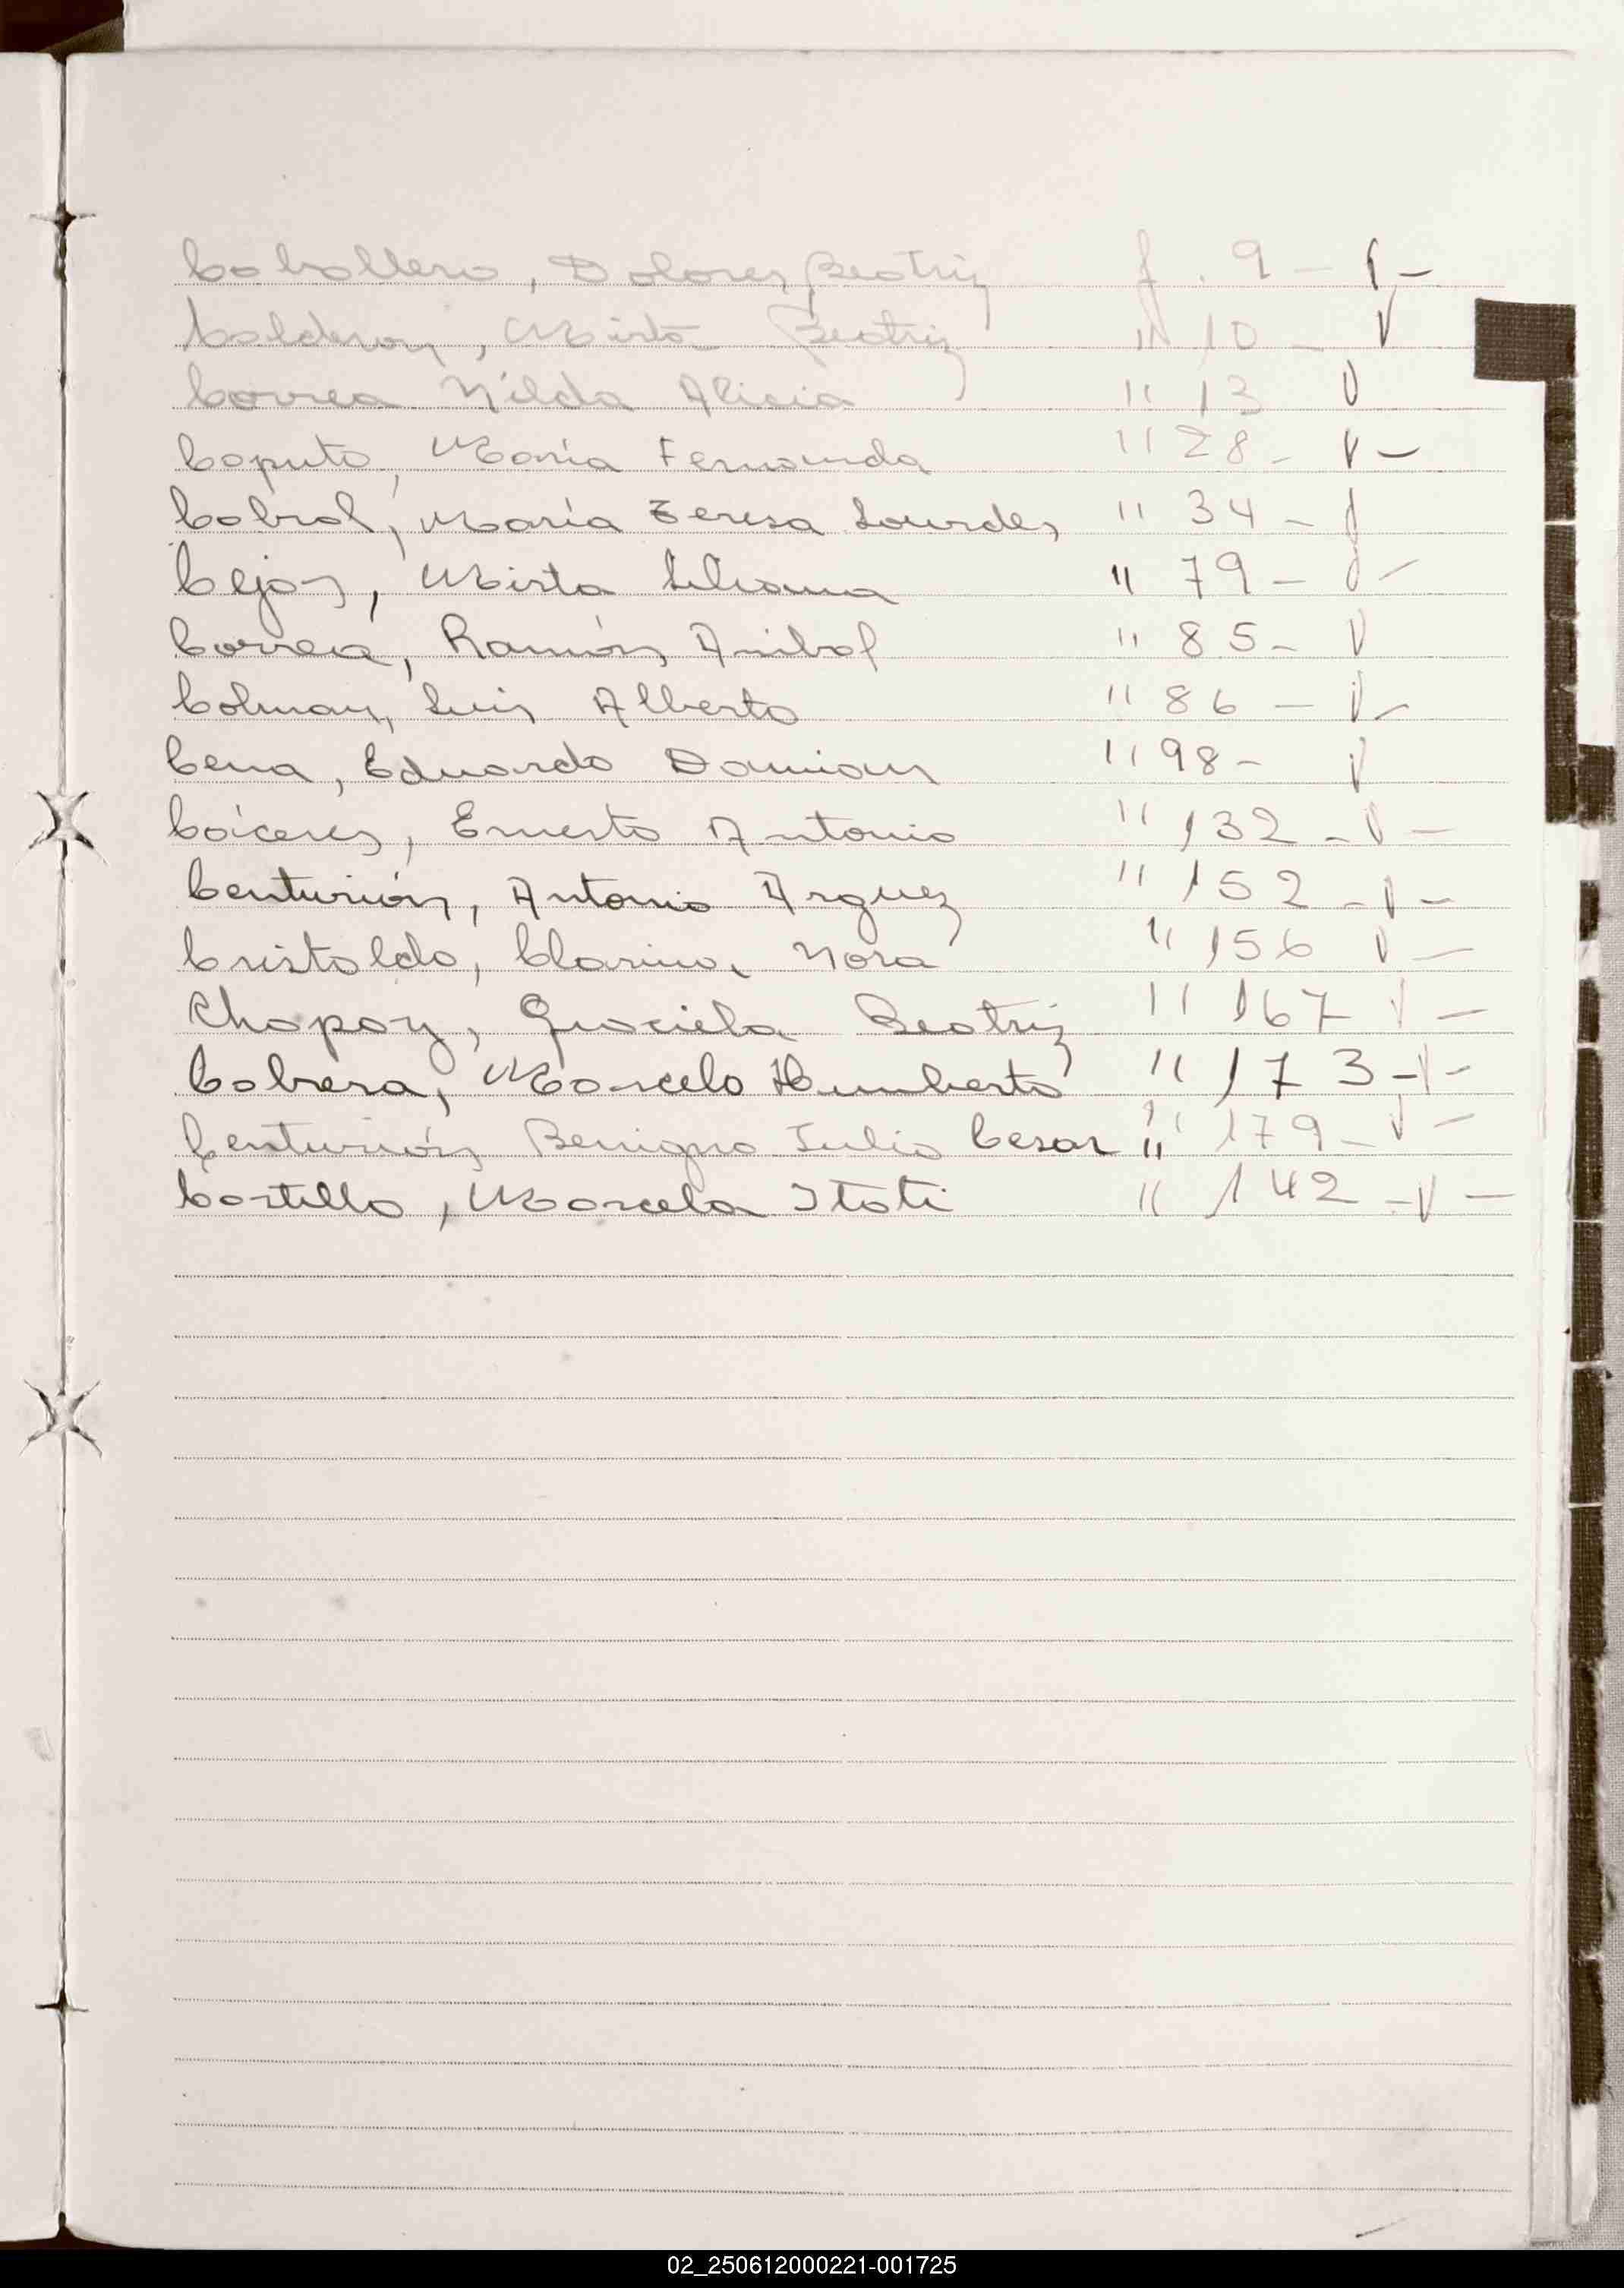 Caballero, Dolores Beatriz f. 9 -
Calderon, Mirta Beatriz " 10 -
Correa Nilda Alicia " 13
Caputo, María Fernanda " 28 -
Cabral, María Teresa Lourdes " 34 -
Cejas, Mirta Liliana " 79 -
Correa, Ramón Anibal " 85 -
Colman, Luis Alberto " 86 -
Cena, Eduardo Damian " 98 -
Cáceres, Ernesto Antonio " 132 -
Centurión, Antonio " 152 -
Cristaldo, Nora " 156
Chapay, Graciela Beatriz " 167
Cabrera, Marcelo Humberto " 173 -
Centurión Benigno Julio Cesar " 179 -
Castillo, Marcela Itati " 142 -
02_250612000221-001725